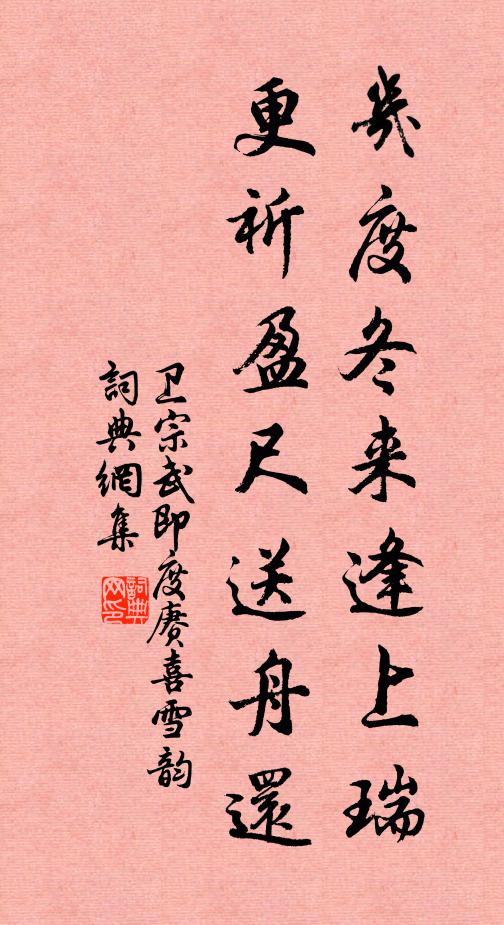 幾度冬来逢上瑞
更祈盈尺送舟還
卫宗武即度赓喜雪韵
詞典網集
詞典網印